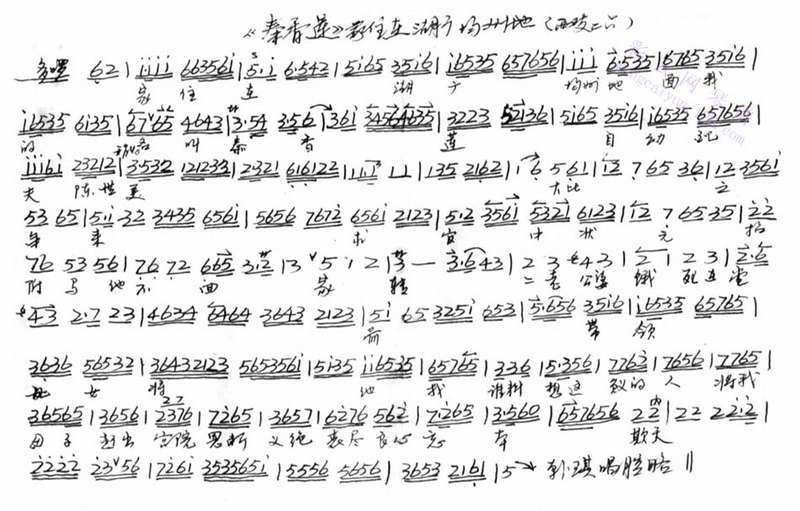 《秦香莲》家住在湖广均州地(西皮二六)
62 | iiii 663561 | 5·i 6·542 | 5165 3516 | i6535 657656 | iii 6·535 | 6765 3516 |
家 住 在 湖 广 均州 地 面 我
i6535 6135 | 6765 4643 | 3·54 356 | 361 34564635 | 3223 52136 | 5165 3516 | i6535 657656 |
的 叫 秦 香 莲 自 幼 配
iiii6i 23212 | 3532 121233 | 2321 616122 | 111 11 | 135 2162 | 1·6 561 | 12 765 36 | 12 3561 |
夫 陈 世 美 大比 之
53 65 | 5·i 32 3435 6561 | 5656 7672 6561 2123 | 5·12 3561 5321 6123 | 12 7 65 35 | 22
年 来 求 官 中 状 元 招
76 53 56 | 76 72 665 3·2 | 3 5 1 2 | 3 — 3·643 | 2 3 43 | 2 1 2 3 | 2·6
附马 他 不 回 家 转 二老 公婆 饿 死 在 堂
43 2·7 23 | 4634 6464 3643 2123 | 51 65 3251 653 | 5·656 3516 | i6535 65765 |
前 带 领
3636 56532 | 36432123 5653561 | 5135 116535 | 65765 | 336 | 5·356 | 7762 | 7656 | 7765 |
女 将 他 我 谁料 想 这 狠的 人 将我
36565 | 3656 | 2376 | 7265 | 3657 | 6276 562 | 7265 | 3·560 | 657656 22 | 22 22·2 |
母 子 赶出 宫院 恩断 义绝 丧尽 良心 忘 本 欺天
2222 2356 | 7261 3535651 | 5556 5656 | 3653 2161 | 5 韩琪唱腔略 ‖